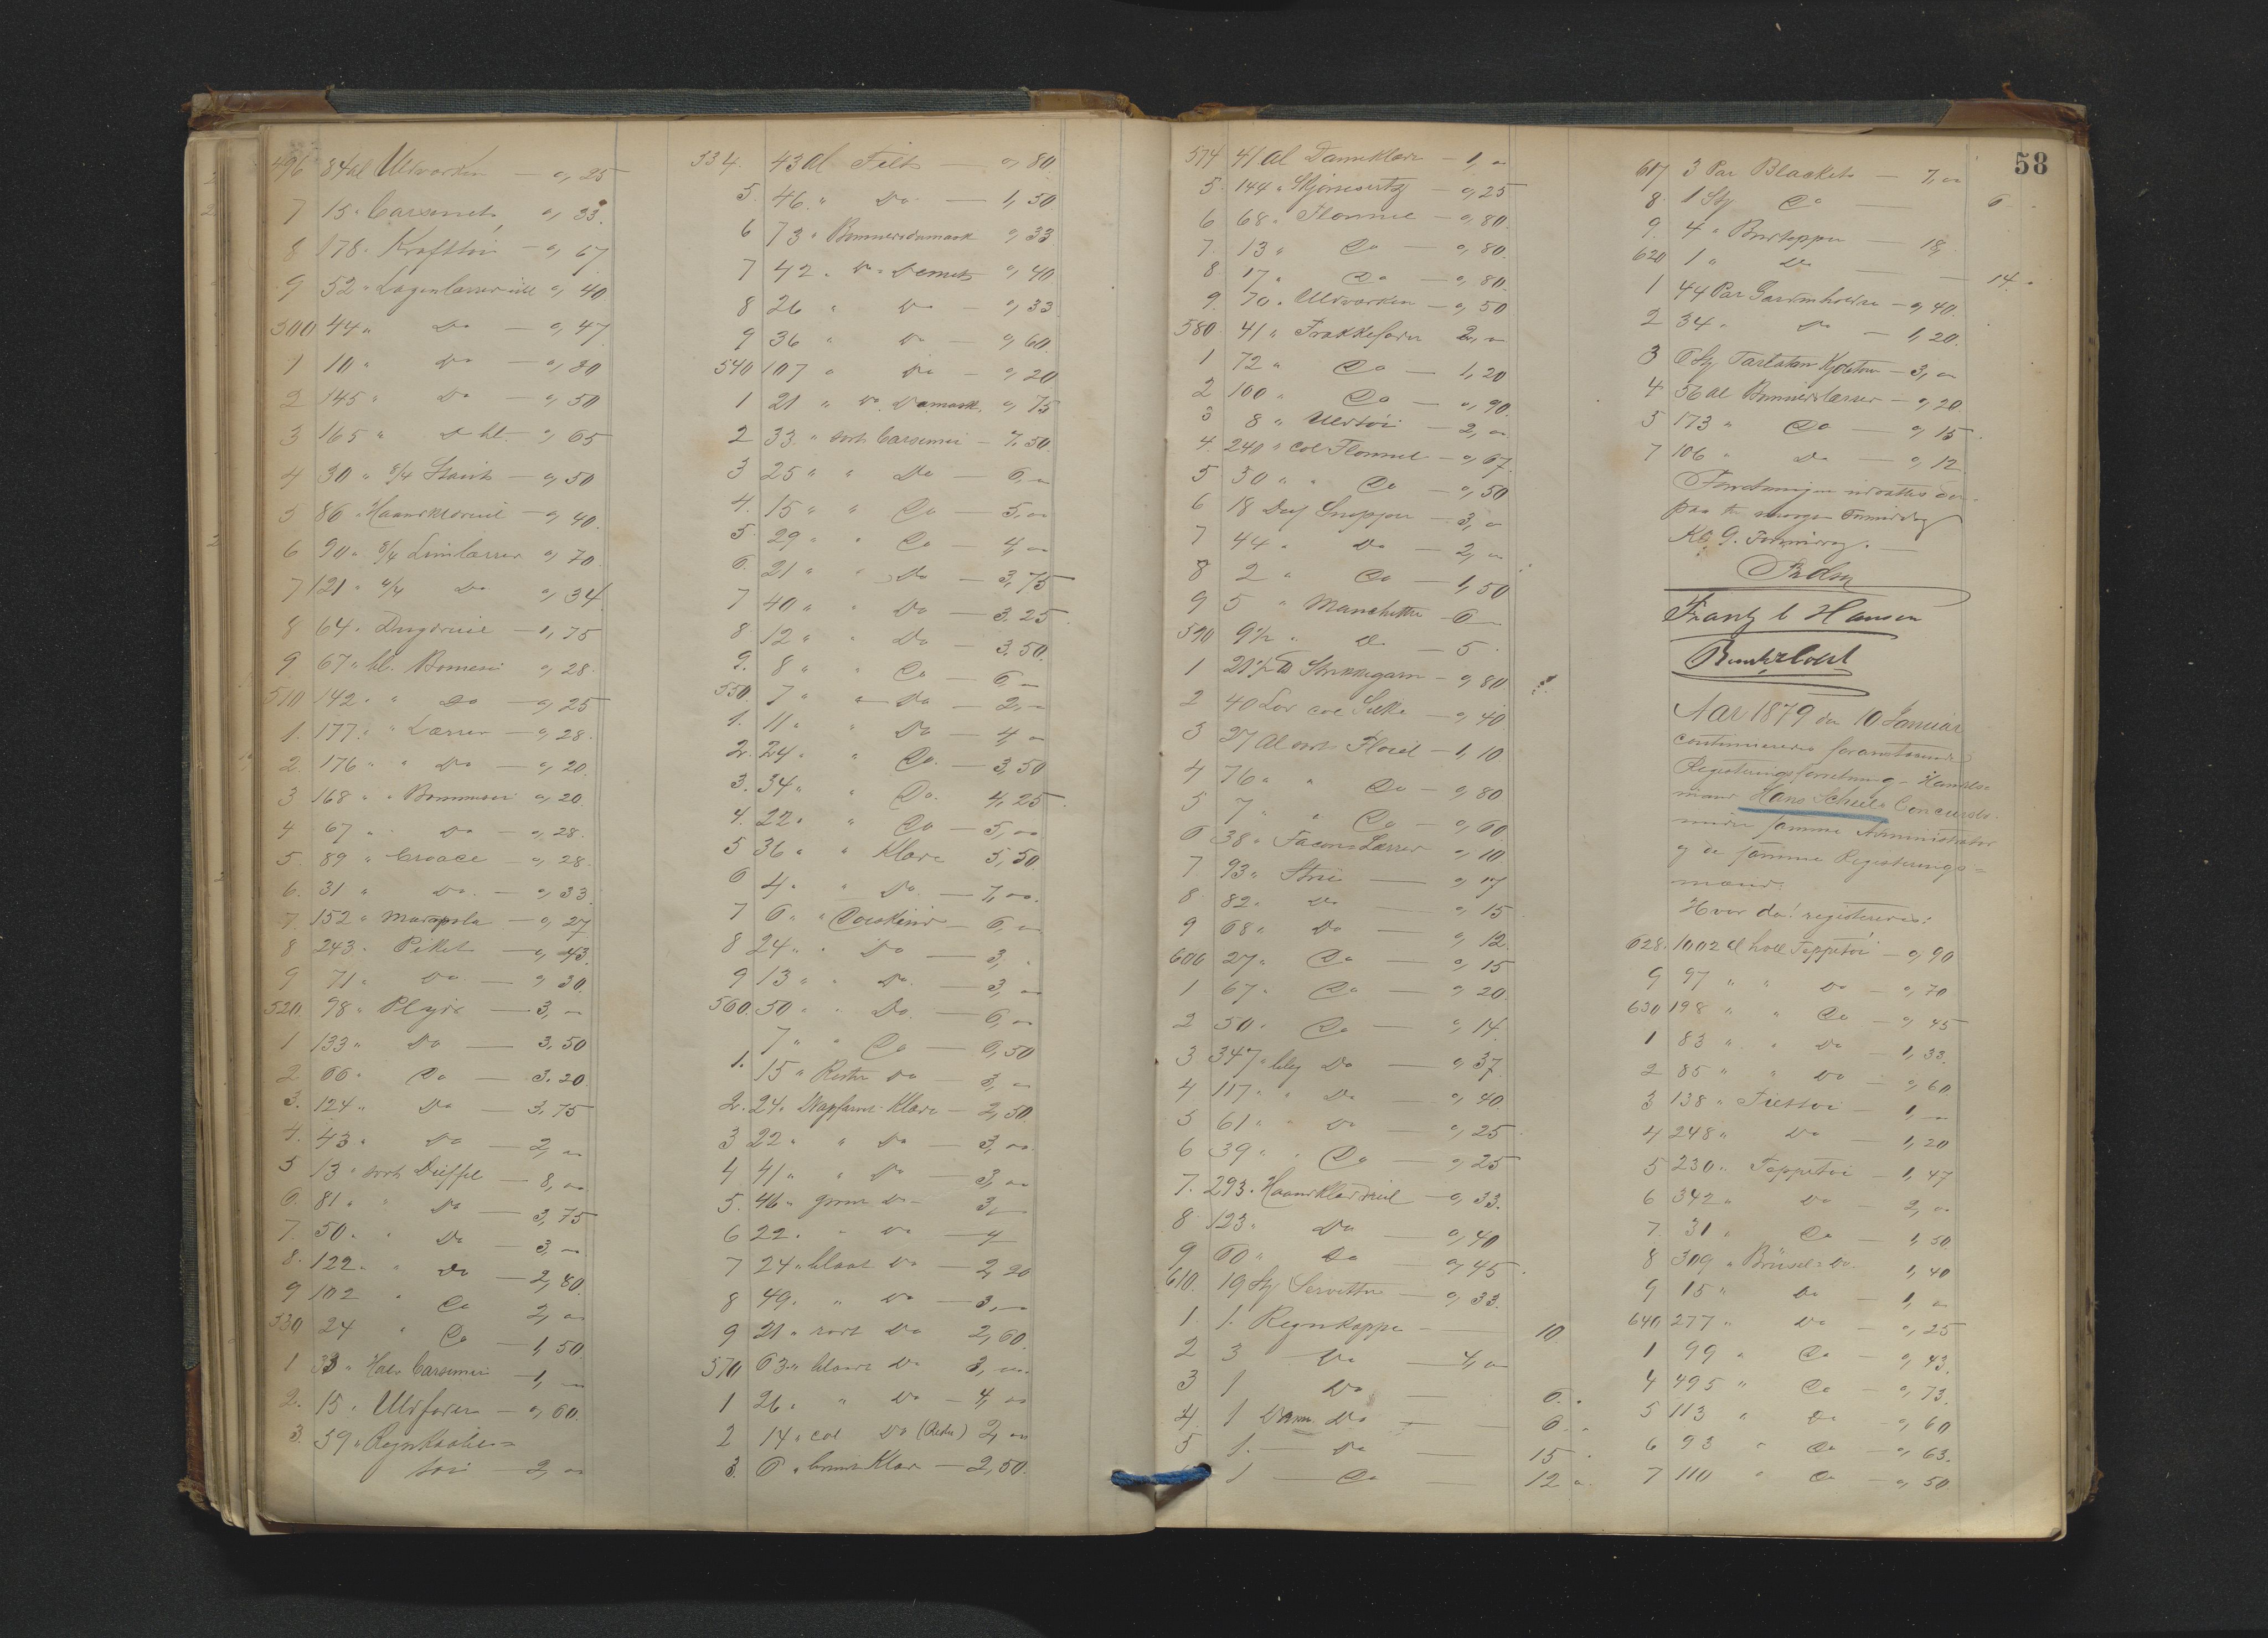 496 84 al Uldvarken — 0,25
7 15 " Carsenet 0,33
8 178 " Krafttøi — 0,67
9 52 " Lagenlærred 0,40
500 44 " Do — 0,47
1 10 " Do — 0,80
2 145 " Do — 0,50
3 165 " Do bl. 0,65
4 30 " 8/4 Stouts — 0,50
5 86 " Haandklædreil — 0,40
6 90 " 8/4 Linlærred 0,70
7 121 " 4/4 Do 0,34
8 64 " Dugdreil — 1,75
9 67 " bl. Bomesi 0,28
510 142 " " Do — 0,25
1. 177 " " Lærred — 0,28
2. 176 " " Do — 0,20
3 168 " " Bommesi 0,20
4 67 " Do — 0,28
5. 89 " Croace — 0,28
6. 31 " Do. — 0,33
7. 152 " Madapola — 0,27
8 243 " Piket — 0,43
9 71 " Do — 0,30
520. 98 " Plyds — 3, "
1 133 " Do — 3,50
2. 66 " Do — 3.20
3. 124 " Do — 3,75
4. 43 " Do — 2, "
5 13 " sort Düffel — 8, "
6. 81 " " Do — 3,75
7. 50 " " Do — 3, "
8. 122 " " Do — 2,80
9 102 " Do 2, "
530 24 " Do — 1,50
1 33 " Halv Carsemir — 1, "
2. 15 " Uldfoder — 0,60
3. 59 " Regnkaabe=
tøi — 2, "
534. 43 al Filt — 0,80
5. 46 " Do — 1,50
6 73 " Bommesidamask 0,33
7 42 " Do Demet 0,40
8 26 " Do — 0,33
9 36 " Do — 0,60
540 107 " Do — 0,20
1 21 " Do Damask 0,75
2 33 " sort Carsemir — 7.50
3 25 " " Do — 6, "
4. 15 " " Do — 5, "
5. 29 " " Do — 4, "
6. 21 " " Do — 3,75
7 40 " " Do — 3.25
8. 12 " " Do — 3.50
9. 8 " " Do — 6, "
550. 7 " " Do — 2, "
1. 11 " " Do — 4, "
2. 24 " " Do. — 3,50
3. 34 " " Do. 4,25
4. 22 " " Do — 5, "
5 36 " " Klæde 5,50
6 4 " " Do. — 7, "
7 6 " " Doeskind — 6, "
8 24 " " Do — 3, "
9 13 " " Do. — 3, "
560. 50 " " Do. — 6, "
7 " " Do — 6,50
1. 15 " Rester Do — 3, "
2. 24 " Vaapfarv. Klæde — 2,50
3 22 " " Do — 3, "
4 41 " " Do — 3, "
5. 46 " grøn Do — 3,
6 22 " " Do — 4
7 24 " blaat Do — 2,20
8 49 " " Do — 3,
9 21 " rødt Do 2,60
570 63 " blaat Do 3, "
1 26 " " Do — 4, "
2 14 " col Do (Rester) 2, "
3. 6 " brunt Klæde — 2,50
574 41 al Dameklæde — 1, "
5. 144 " Skjørtesertz — 0,25
6 68 " Flonnel — 0,80
7. 13 " Do — 0,80
8 17 " Do — 0,80
9. 70 " Uldvarken — 0,50
580. 41 " Frakkefoder 2, "
1 72 " Do — 1,20
2 100 " Do — 0,90
3 8 " Uldtøi — 2, "
4. 240 " col Flonnel — 0,67
5 30 " " Do — 0,50
6 18 Dus Snipper — 3, "
7 44 " Do — 2, "
8 2 " Do — 1,50
9 5 " Manchetter — 6
590 9½ " Do — 5
1 21½ ℔ Strikkegarn — 0,80
2 40 Lod col Silke — 0,40
3 27 al sort Floiel — 1,10
4 76 " " Do — 0,80
5 7 " " Do — 0,60
6 38 " Facons Lærred 0,10
7 93 " Strie — 0,17
8. 82 " Do — 0,15
9 68 " Do — 0,12
600 27 " Do — 0,15
1 67 " Do — 0,20
2 50 " Do — 0,14
3 347 " bleg Do — 0,37
4 117 " " Do — 0,40
5 61 " " Do — 0,25
6 39 " " Do — 0,25
7. 293 " Haandklædreil — 0,33
8 123 " Do — 0,40
9 60 " Do — 0,45
610. 19 St Servietter — 0,33
1. 1. Regnkappe — 10
2 3 Do — 4, "
3 1 Do — 6. "
4. 1 Dam Do — 6. "
5 1. — Do — 15 "
1 — Do — 12 "
58
617 3 Par Blankets — 7, "
8. 1 St Do — 6
9. 4 " Bordtepper — 18,
620 1 " Do — 14 "
1 44 Par Gardinholdere — 0,40
2 34 " Do — 1,20
3 6 St Tarlatan Kjoletøi — 3, "
4 56 al Bommeslærred — 0,20
5 173 " Do — 0,15
7 106 " Do — 0,12
Forretningen udsattes der-
paa til morgen Formiddag
Kl 9. Formiddag. —
Frantz C Hansen
Aar 1879 den 10 Januar
continueredes foranstaaende
Registeringsforretning i Handels=
mand Hans Scheels Concursbo
under samme Administrator
og de samme Registerings=
mænd.
Hvor da registeredes:
628. 1002 al holl Teppetøi — 0,90
9 97 " " Do — 0,70
630 198 " " Do — 0,45
1 83 " " Do — 1,33
2 85 " " Do — 0,60
3 138 " Filttøi — 1, "
4 248 " Do — 1,20
5 230 " Teppetøi — 1,47
6 342 " Do — 2, "
7. 31 " Do — 1,50
8 309 " Brüsel= Do. 1,40
9 15 " Do — 1, "
640 277 " Do — 0,25
1 99 " Do — 0,43
4 495 " Do — 0,73
5 113 " Do — 0,60
6 93 " Do — 0,63
7 110 " Do — 0,50